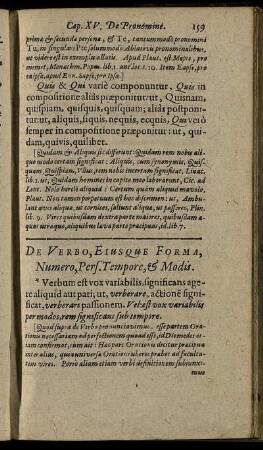 Cap. XV. De Pronomine. 159
prima & secunda persona, & Te, tantummodo pronomini
Tu, in singulari Pte, solummodo Ablativis pronominalibus,
ut videre est in exemplis allatis. Apud Plaut. est Mepte, pro
memet,
Quis & Qui variè componuntur. Quis in
compositione aliàs præponitur, ut, Quisnam,
quispiam, quisquis, quisquam; aliàs postponi-
tur, ut, aliquis, siquis, nequis, ecquis, Qui verò
semper in compositione præponitur: ut, qui-
dam, quivis, quilibet.
[Quidam & Aliquis sic differunt: Quidam rem nobis aliquo
modo certam significat: Aliquis, cum synonymis, Quis-
quam, Quispiam, Ullus, rem nobis incertam significat, Linac.
lib. 1. ut, Quidam homines in capite meo laborarunt, Cic. ad
Lent. Nolo hercle aliud: Certum quàm aliquid mavolo,
Plaut. Non tamen perpetuum est hoc discrimen: ut, Ambu-
lant aves aliquæ, ut cornices, saliunt aliquæ, ut passeres, Plin.
lib. 9. Vires quibusdam dextra parte majores, quibusdam æ-
quæ utraque, aliquibus læva parte præcipuæ, id. lib. 7.
DE VERBO, EJUSQUE FORMA,
Numero, Pers. Tempore, & Modis.
* Verbum est vox variabilis, significans age-
re aliquid aut pati; ut, verberare, actionē signifi-
cat, verberari passionem. Vel est vox variabilis
per modos, rem significans sub tempore.
[Quod supra de Verbo pronunciavimus, esse partem Ora-
tionis necessariam ad perfectionem quoad esse, id Diomedes et-
iam confirmat, cum ait: Hæc pars Orationis dicitur præcipua
inter alias, quia universa Orationis uberis præbet ad faculta-
tem vires. Porrò aliam etiam verbi definitionem subjunxi-
mus